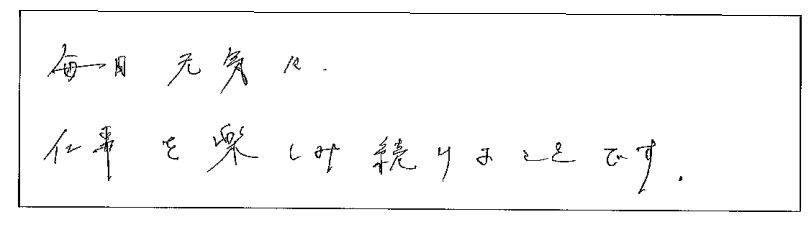 毎日元気に.
仕事を楽しみ続けることです.